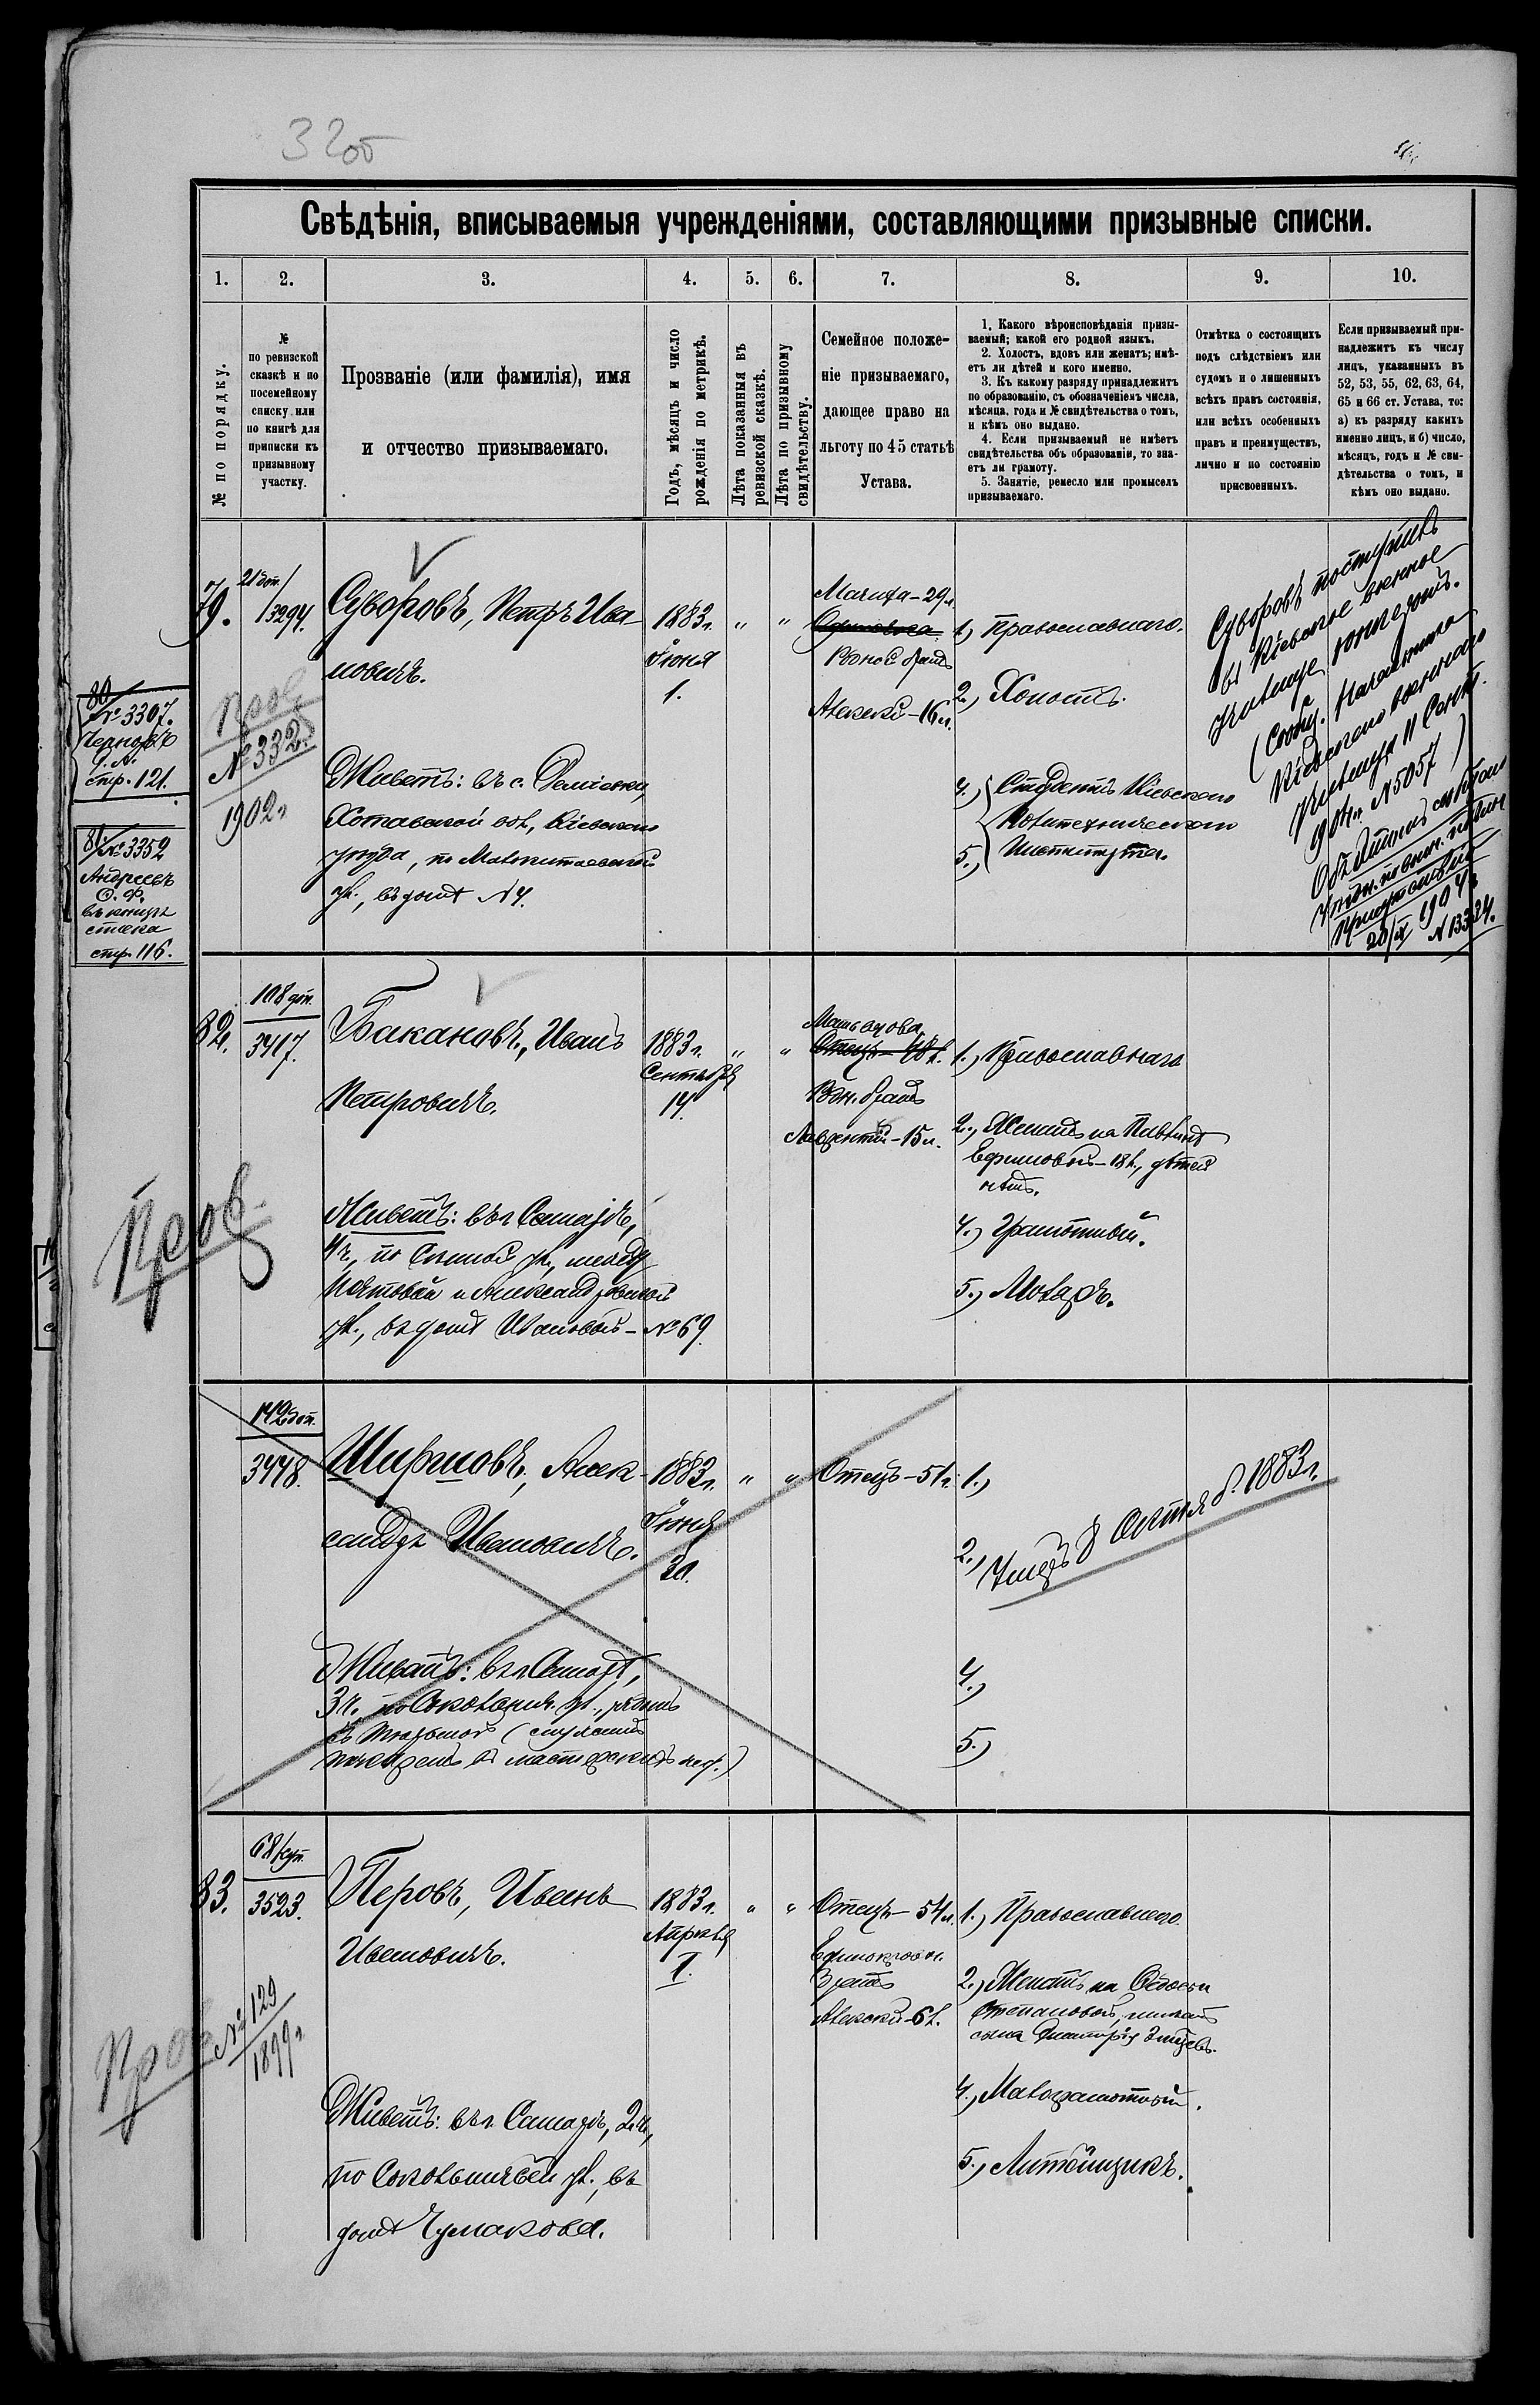 32об
Свѣдѣнія, вписываемыя учрежденіями, составляющими призывные списки.
1. 2. 3. 4. 5. 6. 7. 8. 9. 10.
№ по порядку.
№
по ревизской
сказкѣ и по
посемейному
списку или
по книгѣ для
приписки къ
призывному
участку.
Прозваніе (или фамилія), имя
и отчество призываемаго.
Годъ, мѣсяцъ и число
рожденія по метрикѣ.
Лѣта показанныя въ
ревизской сказкѣ.
Лѣта по призывному
свидѣтельству.
Семейное положе-
ніе призываемаго,
дающее право на
льготу по 45 статьѣ
Устава.
1. Какого вѣроисповѣданія призы-
ваемый; какой его родной языкъ.
2. Холостъ, вдовъ или женатъ; имѣ-
етъ ли дѣтей и кого именно.
3. Къ какому разряду принадлежитъ
по образованію, съ обозначеніемъ числа,
мѣсяца, года и № свидѣтельства о томъ,
и кѣмъ оно выдано.
4. Если призываемый не имѣетъ
свидѣтельства объ образованіи, то зна-
етъ ли грамоту.
5. Занятіе, ремесло или промыселъ
призываемаго.
Отмѣтка о состоящихъ
подъ слѣдствіемъ или
судомъ и о лишенныхъ
всѣхъ правъ состоянія,
или всѣхъ особенныхъ
правъ и преимуществъ,
лично и по состоянію
присвоенныхъ.
Если призываемый при-
надлежитъ къ числу
лицъ, указанныхъ въ
52, 53, 55, 62, 63, 64,
65 и 66 ст. Устава, то:
а) къ разряду какихъ
именно лицъ, и б) число,
мѣсяцъ, годъ и № сви-
дѣтельства о томъ, и
кѣмъ оно выдано.
80
№ 3307.
стр. 121.
81 № 3352
Андреевъ
Ѳ. Ф.
въ концѣ
списка
стр. 116.
79.
21 доп.
3294.
Пров
№ 332
1902 г
Суворовъ, Петръ Ива
новичъ.
Живетъ: въ с. Деміевкѣ,
Хотовской вол., Кіевскаго
уѣзда, по Малокитаевской
ул., въ домѣ № 4.
1883 г.
Іюня
1.
" "
Мачиха - 29 л.
Родной братъ
Алексѣй - 16 л.
1.) Православнаго.
2.) Холостъ.
4.) Студентъ Кіевскаго
Политехническаго
5.) Института.
Суворовъ поступилъ
въ Кіевское военное
училище юнкеромъ.
(Сообщ. Начальника
Кіевскаго военнаго
училища 11 Сент.
1904 г. № 5057)
Уѣздн. по воин. повин
Присутствія
20/IX 1904 г
№ 13324.
82.
108 доп.
3417.
Пров.
Бакановъ, Иванъ
Петровичъ.
Живетъ: въ г. Самарѣ,
4 ч., по Сѣнной ул., между
Почтовой и Александровской
ул., въ домѣ Ивановой - № 69.
1883 г.
Сентября
14.
" "
Мать вдова
Отецъ - 48 л.
Родн. братъ
Лаврентій - 15 л.
1.) Православнаго
2.) Женатъ на
Ефимовой - 18 л., дѣтей
нѣтъ.
4.) Грамотный.
5.) Маляръ.
142 доп.
3448.
Ширшовъ, Алек-
сандръ Ивановичъ.
Живетъ: въ г. Самарѣ,
3 ч. по Сокольнич. ул., рядомъ
съ тюрьмой (служитъ
токаремъ въ мастерскихъ
1883 г.
Іюня
30.
" "
Отецъ - 51 г.
1.)
2.)
4.)
5.)
Умеръ 8 Октяб. 1883 г.
83.
68 куп.
3523.
Пров № 129
1899 г
Перовъ, Иванъ
Ивановичъ.
Живетъ: въ г. Самарѣ, 2 ч.,
по Соколничьей ул., въ
домѣ Чумакова.
1883 г.
Апрѣля
7.
" "
Отецъ - 54 л.
Единокровн.
братъ
Алексѣй - 6 л.
1.) Православнаго
2.) Женатъ на Ѳедосьи
Степановой, имѣетъ
сына Дмитрія
4.) Малограмотный.
5.) Литейщикъ.